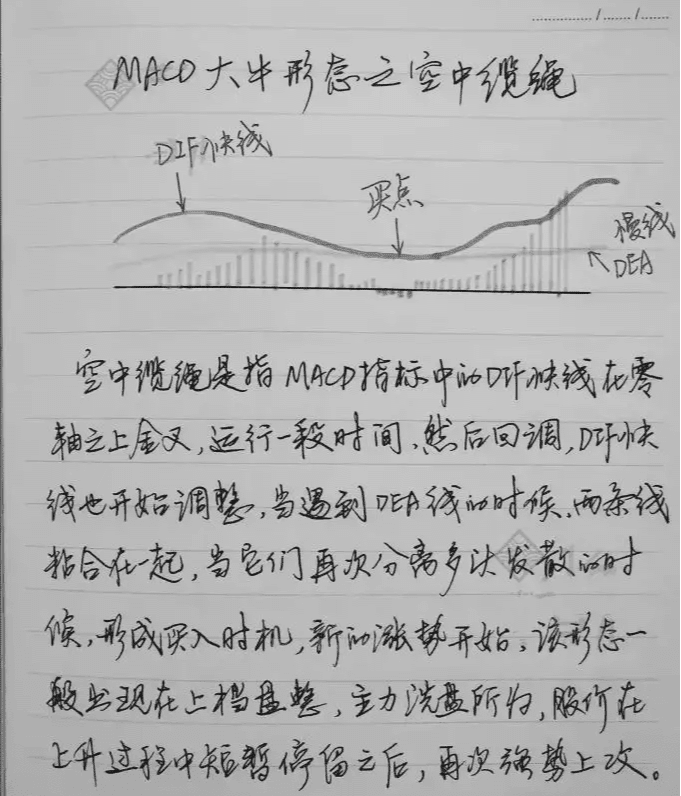 MACD大牛形态之空中缆绳
DIF快线
买点
慢线
DEA
空中缆绳是指MACD指标中的DIF快线在零
轴之上金叉,运行一段时间,然后回调,DIF快
线也开始调整,当遇到DEA线的时候,两条线
粘合在一起,当它们再次分离多头发散的时
候,形成买入时机,新的涨势开始,该形态一
般出现在上档盘整,主力洗盘所为,股价在
上升过程中短暂停留之后,再次强势上攻。